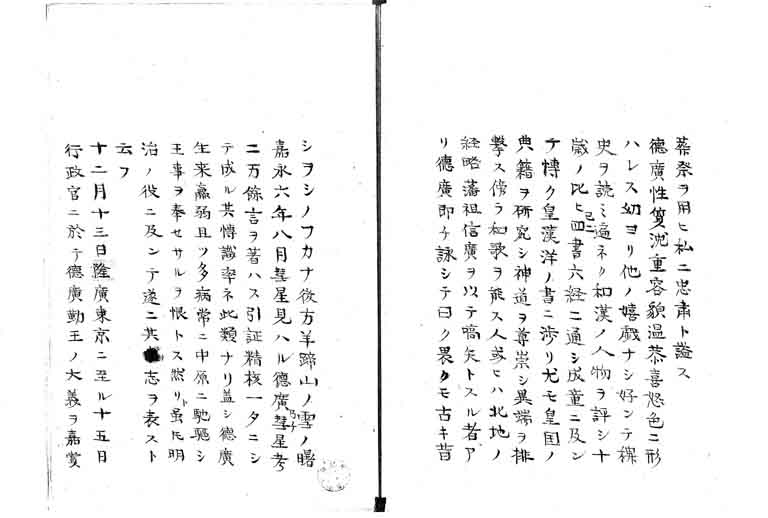 葬祭ヲ用ヒ私ニ忠肅ト謚ス
德廣性篤沈重容貌温恭喜怒色ニ形
ハレス幼ヨリ他ノ嬉戲ナシ好ンテ稗
史ヲ読ミ遍ネク和漢ノ人物ヲ評シ十
歳ノ比ヒ已ニ四書六経ニ通シ成童ニ及ン
テ博ク皇漢洋ノ書ニ渉リ尤モ皇国ノ
典籍ヲ研究シ神道ヲ尊崇シ異端ヲ排
撃ス傍ラ和歌ヲ能ス人或ヒハ北地ノ
経略藩祖信廣ヲ以テ嚆矢トスル者ア
リ德廣即チ詠シテ曰ク畏クモ古キ昔
シヲシノフカナ後方羊蹄山ノ雪ノ曙
嘉永六年八月彗星見ハル德廣乃チ彗星考
二万餘言ヲ著ハス引証精核一夕ニシ
テ成ル其博識率ネ此類ナリ蓋シ德廣
生来羸弱且ツ多病常ニ中原ニ馳駆シ
王事ヲ奉セサルヲ恨トス然リト虽𪜈明
治ノ役ニ及ンテ遂ニ其志ヲ表スト
云フ
十二月十三日隆廣東京ニ至ル十五日
行政官ニ於テ德廣勤王ノ大義ヲ嘉賞